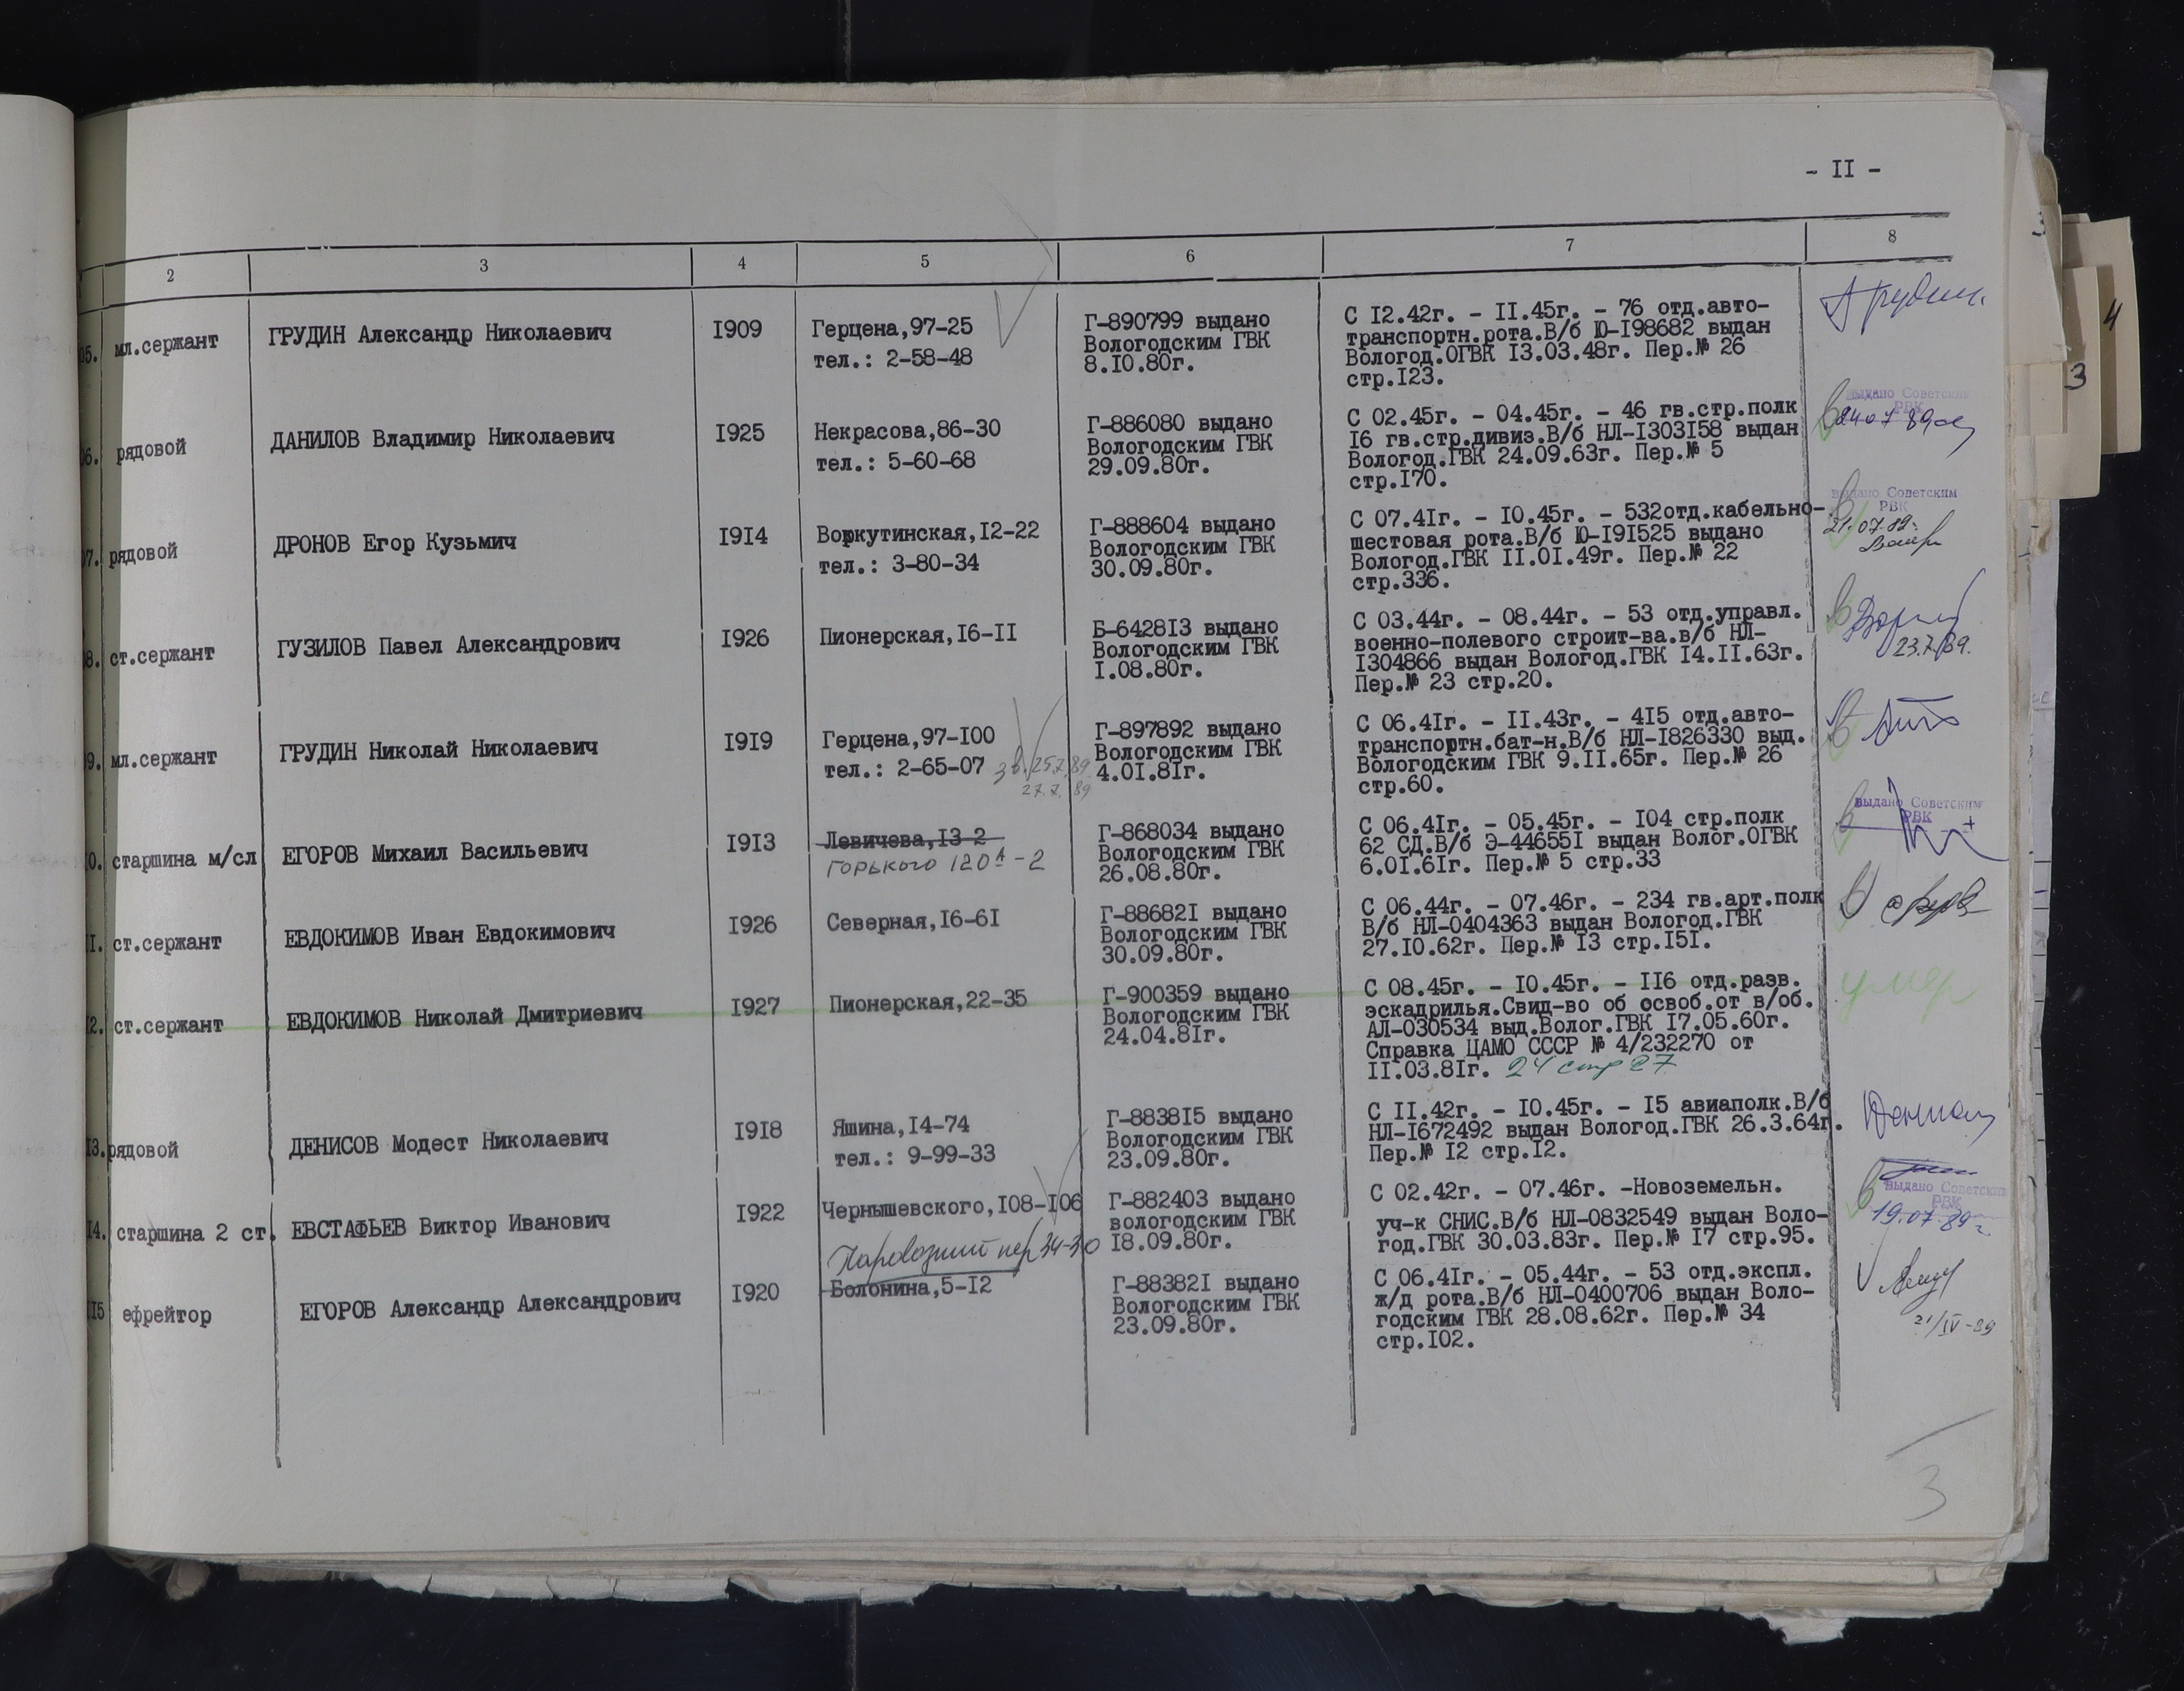 - II -
2 3 4 5 6 7 8
05. мл.сержант ГРУДИН Александр Николаевич I909 Герцена,97-25
тел.: 2-58-48
Г-890799 выдано
Вологодским ГВК
8.I0.80г.
С I2.42г. - II.45г. - 76 отд.авто-
транспортн.рота.В/б Ю-I98682 выдан
Вологод.ОГВК I3.03.48г. Пер.№ 26
стр.I23.
Грудин
06. рядовой ДАНИЛОВ Владимир Николаевич I925 Некрасова,86-30
тел.: 5-60-68
Г-886080 выдано
Вологодским ГВК
29.09.80г.
С 02.45г. - 04.45г. - 46 гв.стр.полк
I6 гв.стр.дивиз.В/б НЛ-I303I58 выдан
Вологод.ГВК 24.09.63г. Пер.№ 5
стр.I70.
выдано Советским
РВК
24 07 89
07. рядовой ДРОНОВ Егор Кузьмич I9I4 Воркутинская,I2-22
тел.: 3-80-34
Г-888604 выдано
Вологодским ГВК
30.09.80г.
С 07.4Iг. - I0.45г. - 532отд.кабельно-
шестовая рота.В/б Ю-I9I525 выдано
Вологод.ГВК II.0I.49г. Пер.№ 22
стр.336.
выдано Советским
РВК
21.07.89г.
08. ст.сержант ГУЗИЛОВ Павел Александрович I926 Пионерская,I6-II
Б-6428I3 выдано
Вологодским ГВК
I.08.80г.
С 03.44г. - 08.44г. - 53 отд.управл.
военно-полевого строит-ва.в/б НЛ-
I304866 выдан Вологод.ГВК I4.II.63г.
Пер.№ 23 стр.20.
23.7.89.
09. мл.сержант ГРУДИН Николай Николаевич I9I9 Герцена,97-I00
тел.: 2-65-07 зв. 25.7.89
27.7.89
Г-897892 выдано
Вологодским ГВК
4.0I.8Iг.
С 06.4Iг. - II.43г. - 4I5 отд.авто-
транспортн.бат-н.В/б НЛ-I826330 выд.
Вологодским ГВК 9.II.65г. Пер.№ 26
стр.60.
I0. старшина м/сл ЕГОРОВ Михаил Васильевич I9I3 Левичева,I3-2
Горького 120А-2
Г-868034 выдано
Вологодским ГВК
26.08.80г.
С 06.4Iг. - 05.45г. - I04 стр.полк
62 СД.В/б Э-44655I выдан Волог.ОГВК
6.0I.6Iг. Пер.№ 5 стр.33
выдано Советским
РВК
II. ст.сержант ЕВДОКИМОВ Иван Евдокимович I926 Северная,I6-6I
Г-88682I выдано
Вологодским ГВК
30.09.80г.
С 06.44г. - 07.46г. - 234 гв.арт.полк
В/б НЛ-0404363 выдан Вологод.ГВК
27.I0.62г. Пер.№ I3 стр.I5I.
I2. ст.сержант ЕВДОКИМОВ Николай Дмитриевич I927 Пионерская,22-35
Г-900359 выдано
Вологодским ГВК
24.04.8Iг.
С 08.45г. - I0.45г. - II6 отд.разв.
эскадрилья.Свид-во об освоб.от в/об.
АЛ-030534 выд.Волог.ГВК I7.05.60г.
Справка ЦАМО СССР № 4/232270 от
II.03.8Iг. 24 стр 27
умер
I3. рядовой ДЕНИСОВ Модест Николаевич I9I8 Яшина,I4-74
тел.: 9-99-33
Г-8838I5 выдано
Вологодским ГВК
23.09.80г.
С II.42г. - I0.45г. - I5 авиаполк.В/б
НЛ-I672492 выдан Вологод.ГВК 26.3.64г.
Пер.№ I2 стр.I2.
I4. старшина 2 ст. ЕВСТАФЬЕВ Виктор Иванович I922 Чернышевского,I08-I06
Г-882403 выдано
вологодским ГВК
I8.09.80г.
С 02.42г. - 07.46г. -Новоземельн.
уч-к СНИС.В/б НЛ-0832549 выдан Воло-
год.ГВК 30.03.83г. Пер.№ I7 стр.95.
выдано Советским
РВК
19.07.89г
II5 ефрейтор ЕГОРОВ Александр Александрович I920 Паровозный пер 34-30
Болонина,5-I2
Г-88382I выдано
Вологодским ГВК
23.09.80г.
С 06.4Iг. - 05.44г. - 53 отд.экспл.
ж/д рота.В/б НЛ-0400706 выдан Воло-
годским ГВК 28.08.62г. Пер.№ 34
стр.I02.
21/IV-89
3
3
4